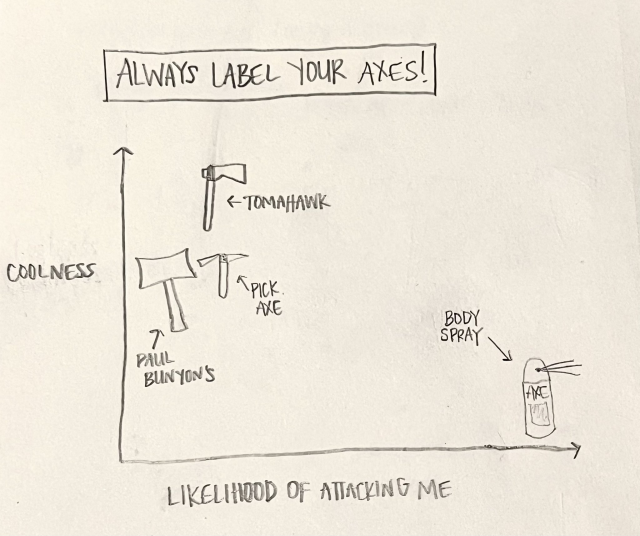 ALWAYS LABEL YOUR AXES!
←TOMAHAWK
COOLNESS
PICK
AXE
PAUL
BUNYON'S
BODY
SPRAY
AXE
LIKELIHOOD OF ATTACKING ME